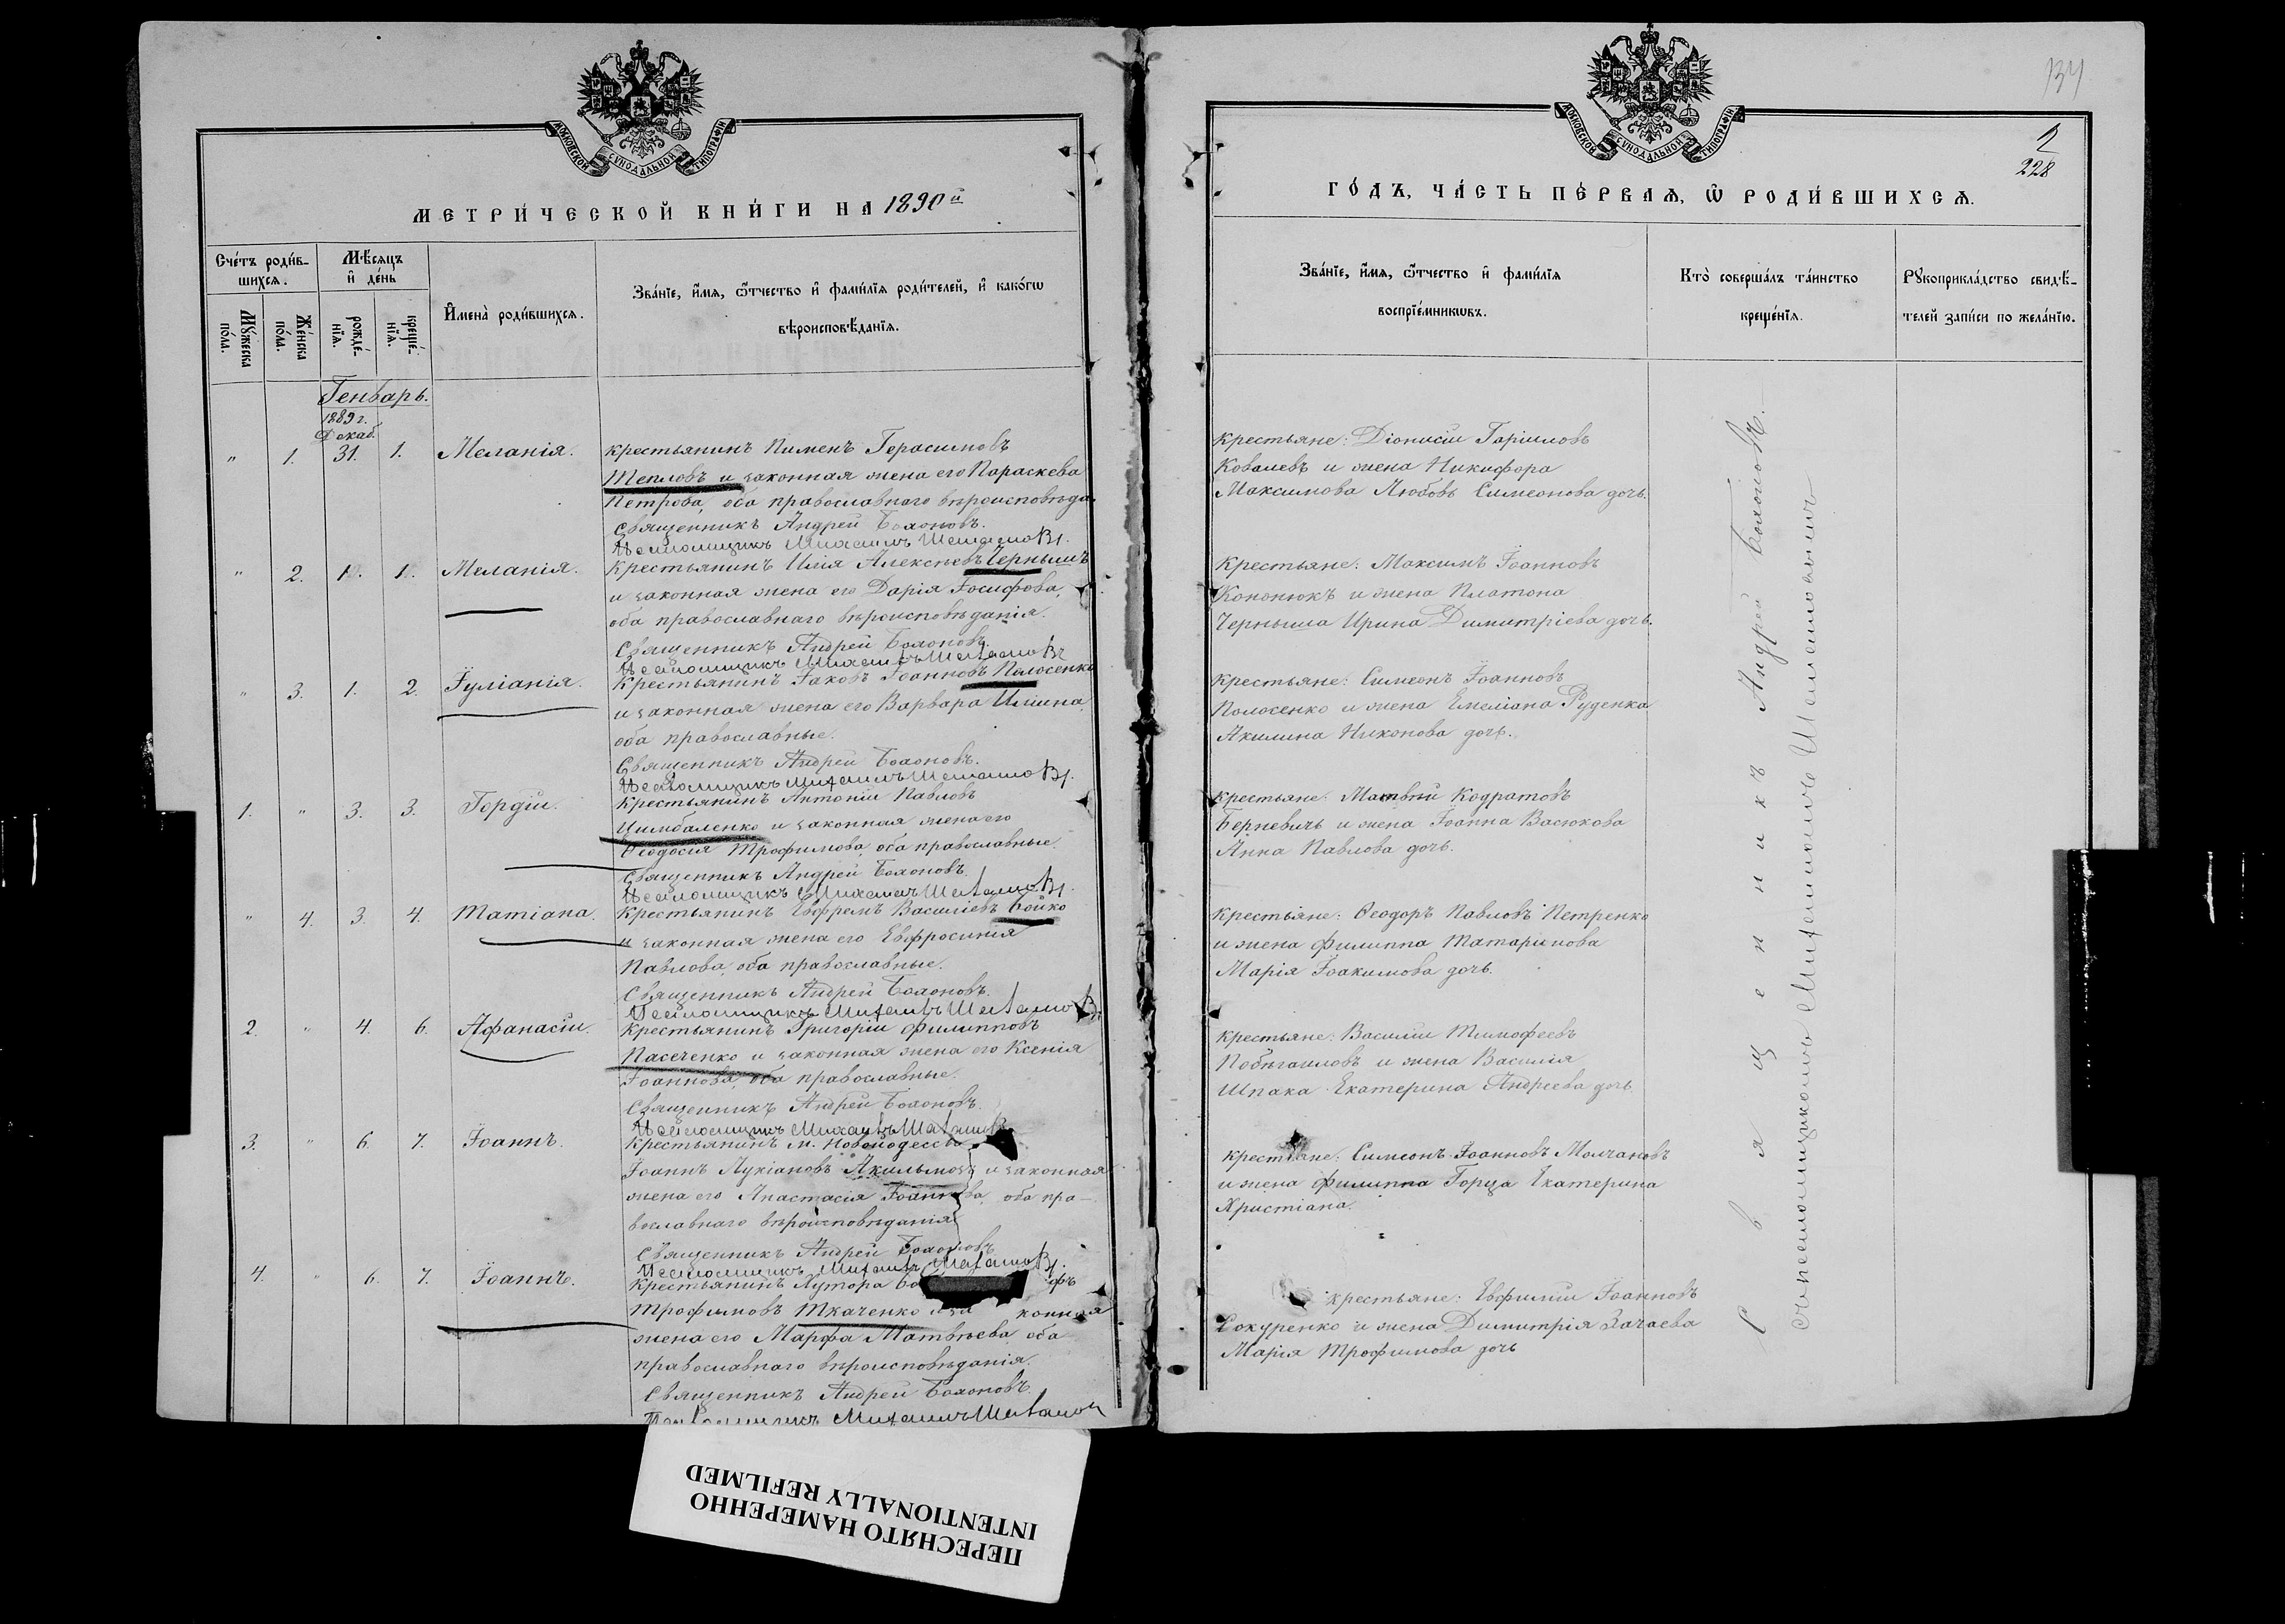 МОСКОВСКОЙ СУНОДАЛЬНОЙ ТИПОГРАФІИ
МЕТРИ́ЧЕСКОЙ КНИ́ГИ НА 1890й
Сче́тъ роди́в-
шихсѧ.
Мѣ́сѧцъ
и҆ де́нь
Мꙋ́жеска
по́ла.
Же́нска
по́ла.
рожде́-
нїѧ.
креще́-
нїѧ.
И҆мена̀ роди́вшихсѧ.
Зва́нїе, и҆́мѧ, ѻ҆́тчество и҆ фами́лїѧ роди́телей, и҆ како́гѡ
вѣроисповѣ́данїѧ.
Генварь.
1889 г.
Декаб.
" 1. 31. 1. Меланія. Крестьянинъ Пименъ Герасимовъ
Тепловъ и законная жена его Параскева
Петрова, оба православнаго вѣроисповѣда.
Священникъ Андрей
Псаломщикъ Михаилъ
" 2. 1. 1. Меланія. Крестьянинъ Илія Алексѣевъ Чернышъ
и законная жена его Дарія Іосифова,
оба православнаго вѣроисповѣданія.
Священникъ Андрей
Псаломщикъ Михаилъ
" 3. 1. 2. Іуліанія. Крестьянинъ Іаковъ Іоанновъ Полосенко
и законная жена его Варвара Иліина,
оба православные.
Священникъ Андрей
Псаломщикъ Михаилъ
1. " 3. 3. Гордій. Крестьянинъ Антоній Павловъ
Цимбаленко и законная жена его
Ѳеодосія Трофимова, оба православные.
Священникъ Андрей
Псаломщикъ Михаилъ
" 4. 3. 4. Татіана. Крестьянинъ Евфремъ Василіевъ Бойко
и законная жена его Евфросинія
Павлова, оба православные.
Священникъ Андрей
Псаломщикъ Михаилъ
2. " 4. 6. Афанасій. Крестьянинъ Григорій Филипповъ
Пасеченко и законная жена его Ксенія
Іоаннова, оба православные.
Священникъ Андрей
Псаломщикъ Михаилъ
3. " 6. 7. Іоаннъ. Крестьянинъ м. Новоодессы
Іоаннъ Лукіановъ и законная
жена его Анастасія Іоаннова, оба пра-
вославнаго вѣроисповѣданія
Священникъ Андрей
Псаломщикъ Михаилъ
4. " 6. 7. Іоаннъ. Крестьянинъ Хутора
Трофимовъ Ткаченко и законная
жена его Марфа Матвѣева, оба
православнаго вѣроисповѣданія.
Священникъ Андрей
Псаломщикъ Михаилъ
МОСКОВСКОЙ СУНОДАЛЬНОЙ ТИПОГРАФІИ
134
228
ГО́ДЪ, ЧА́СТЬ ПЕ́РВАѦ, Ѽ РОДИ́ВШИХСѦ.
Зва́нїе, и҆́мѧ, ѻ҆́тчество и҆ фами́лїѧ
воспрїе́мникѡвъ.
Кто̀ соверша́лъ та́инство
креще́нїѧ.
Рꙋкоприкла́дство свидѣ́-
телей за́писи по жела́нїю.
Крестьяне: Діонисій Гаріиловъ
Ковалевъ и жена Никифора
Максимова Любовь Симеонова дочь.
Крестьяне: Максимъ Іоанновъ
Кононюкъ и жена Платона
Черныша Ирина Димитріева дочь.
Крестьяне: Симеонъ Іоанновъ
Полосенко и жена Емеліана Руденка
Акилина Никонова дочь.
Крестьяне: Матвѣй Кодратовъ
Берневичъ и жена Іоанна Васюкова
Анна Павлова дочь.
Крестьяне: Ѳеодоръ Павловъ Петренко
и жена Филиппа Татаринова
Марія Іоакимова дочь.
Крестьяне: Василій Тимофеевъ
Побѣгаиловъ и жена Василія
Шпака Екатерина Андреева дочь
Крестьяне: Симеонъ Іоанновъ Молчановъ
и жена Филиппа Горца Екатерина
Христіана.
Крестьяне: Евфимій Іоанновъ
Сокуренко и жена Димитрія Зачаева
Марія Трофимова дочь
Священникъ Андрей
съ псаломщикомъ Михаиломъ
ПЕРЕСНЯТО НАМЕРЕННО
INTENTIONALLY REFILMED